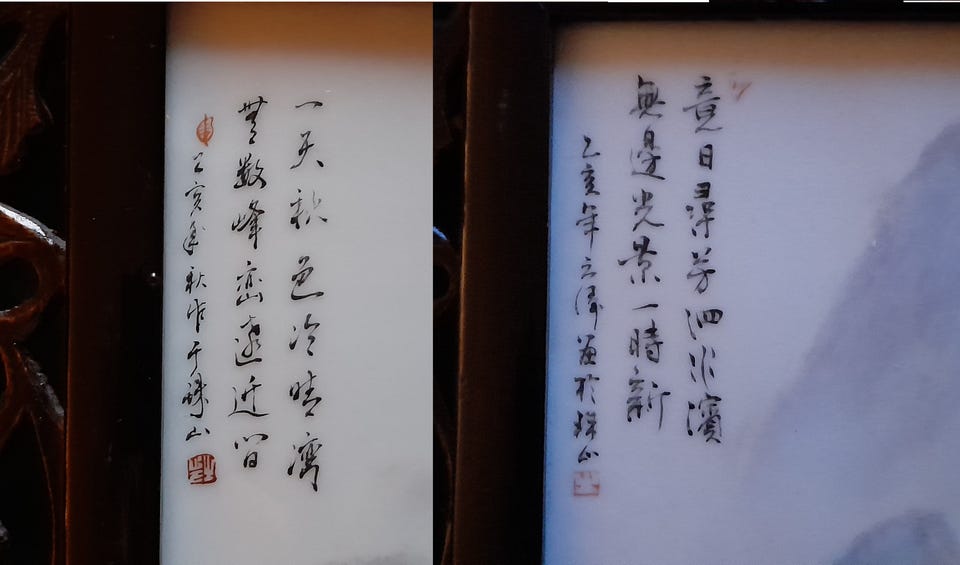 一天秋色冷晴灣
無數峰巒遠近間
乙亥年秋作于珠山
竟日尋芳泗水濱
無邊光景一時新
乙亥年立畫於珠山